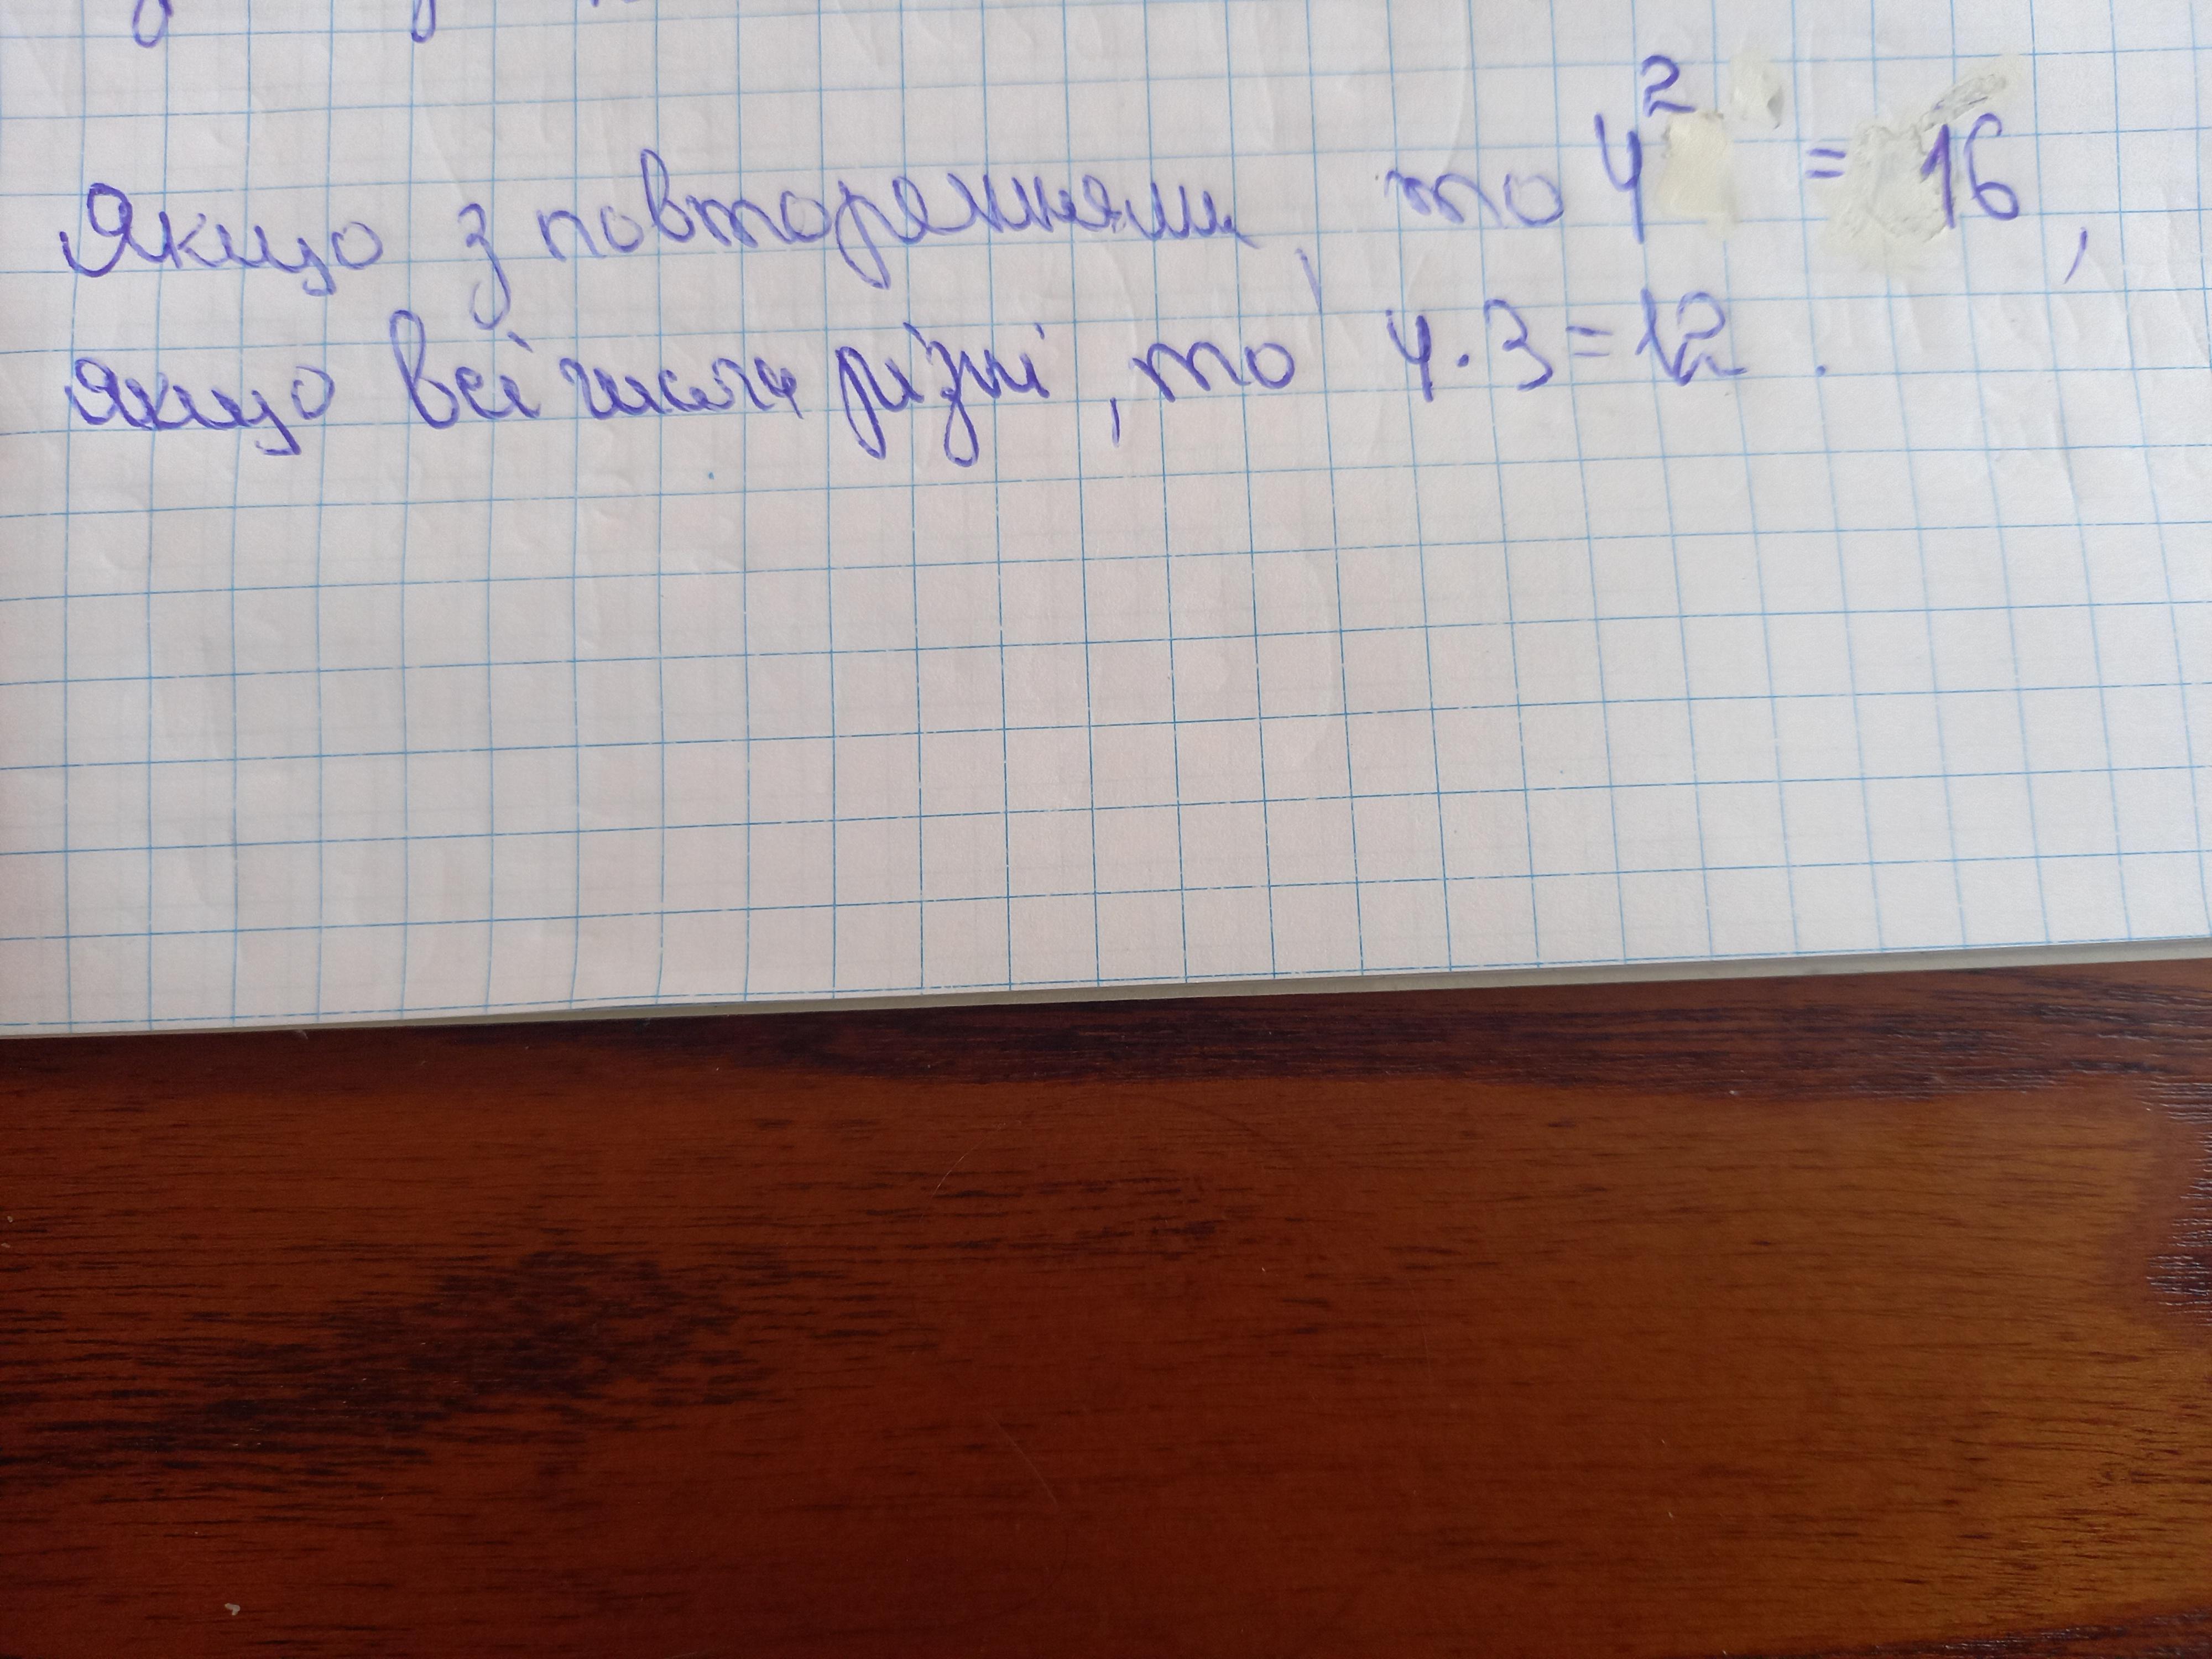 Якщо з повтореннями, то 4² = 16,
якщо всі числа різні, то 4·3=12.